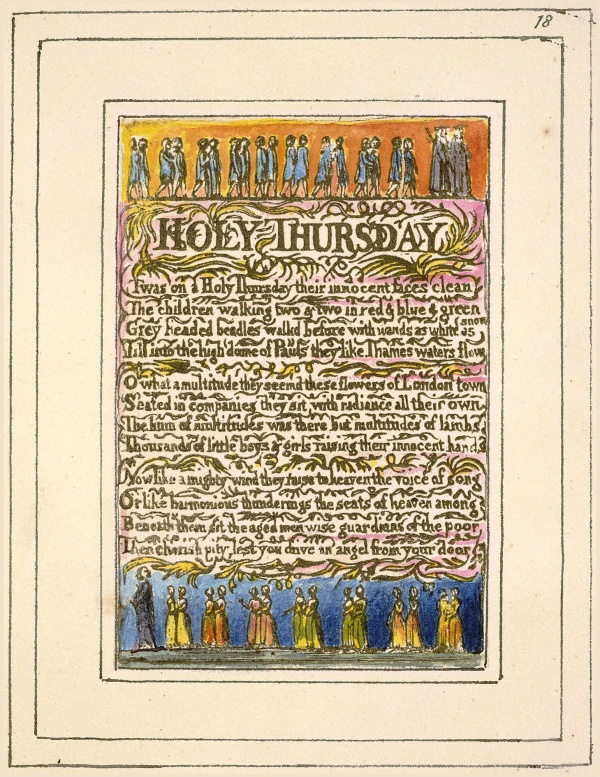 18
HOLY THURSDAY
Twas on a Holy Thursday their innocent faces clean
The children walking two & two in red & blue & green
Grey headed beadles walkd before with wands as white as snow
Till into the high dome of Pauls they like Thames waters flow
O what a multitude they seemd these flowers of London town
Seated in companies they sit with radiance all their own
The hum of multitudes was there but multitudes of lambs
Thousands of little boys & girls raising their innocent hands
Now like a mighty wind they raise to heaven the voice of song
Or like harmonious thunderings the seats of heaven among
Beneath them sit the aged men wise guardians of the poor
Then cherish pity, lest you drive an angel from your door